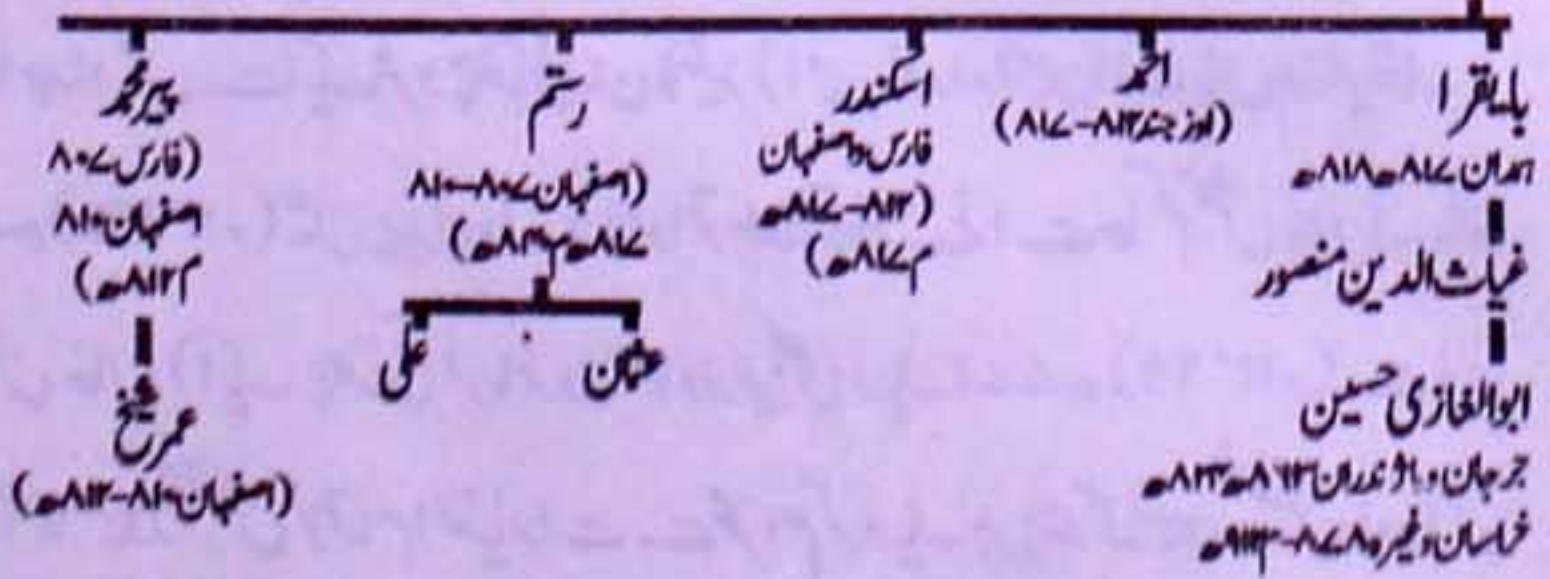 بایقرا
ہمدان ۸۱۷ھ ۸۱۸ھ
غیاث الدین منصور
ابوالغازی حسین
جرجان و ماژندران ۸۶۳ھ ۸۳۳ھ
خراسان وغیرہ ۸۷۸-۹۱۳ھ
احمد
(اوزجند ۸۱۲-۸۱۷)
اسکندر
فارس واصفہان
(۸۱۲-۸۱۷ھ
م ۸۱۷ھ)
رستم
(اصفہان ۸۰۷-۸۱۰
۸۱۷ھ م ۸۳۰ھ)
عثمان
علی
پیر محمد
(فارس ۸۰۷
اصفہان ۸۱۰
م ۸۱۲ھ)
عمر شیخ
(اصفہان ۸۱۰-۸۱۲ھ)